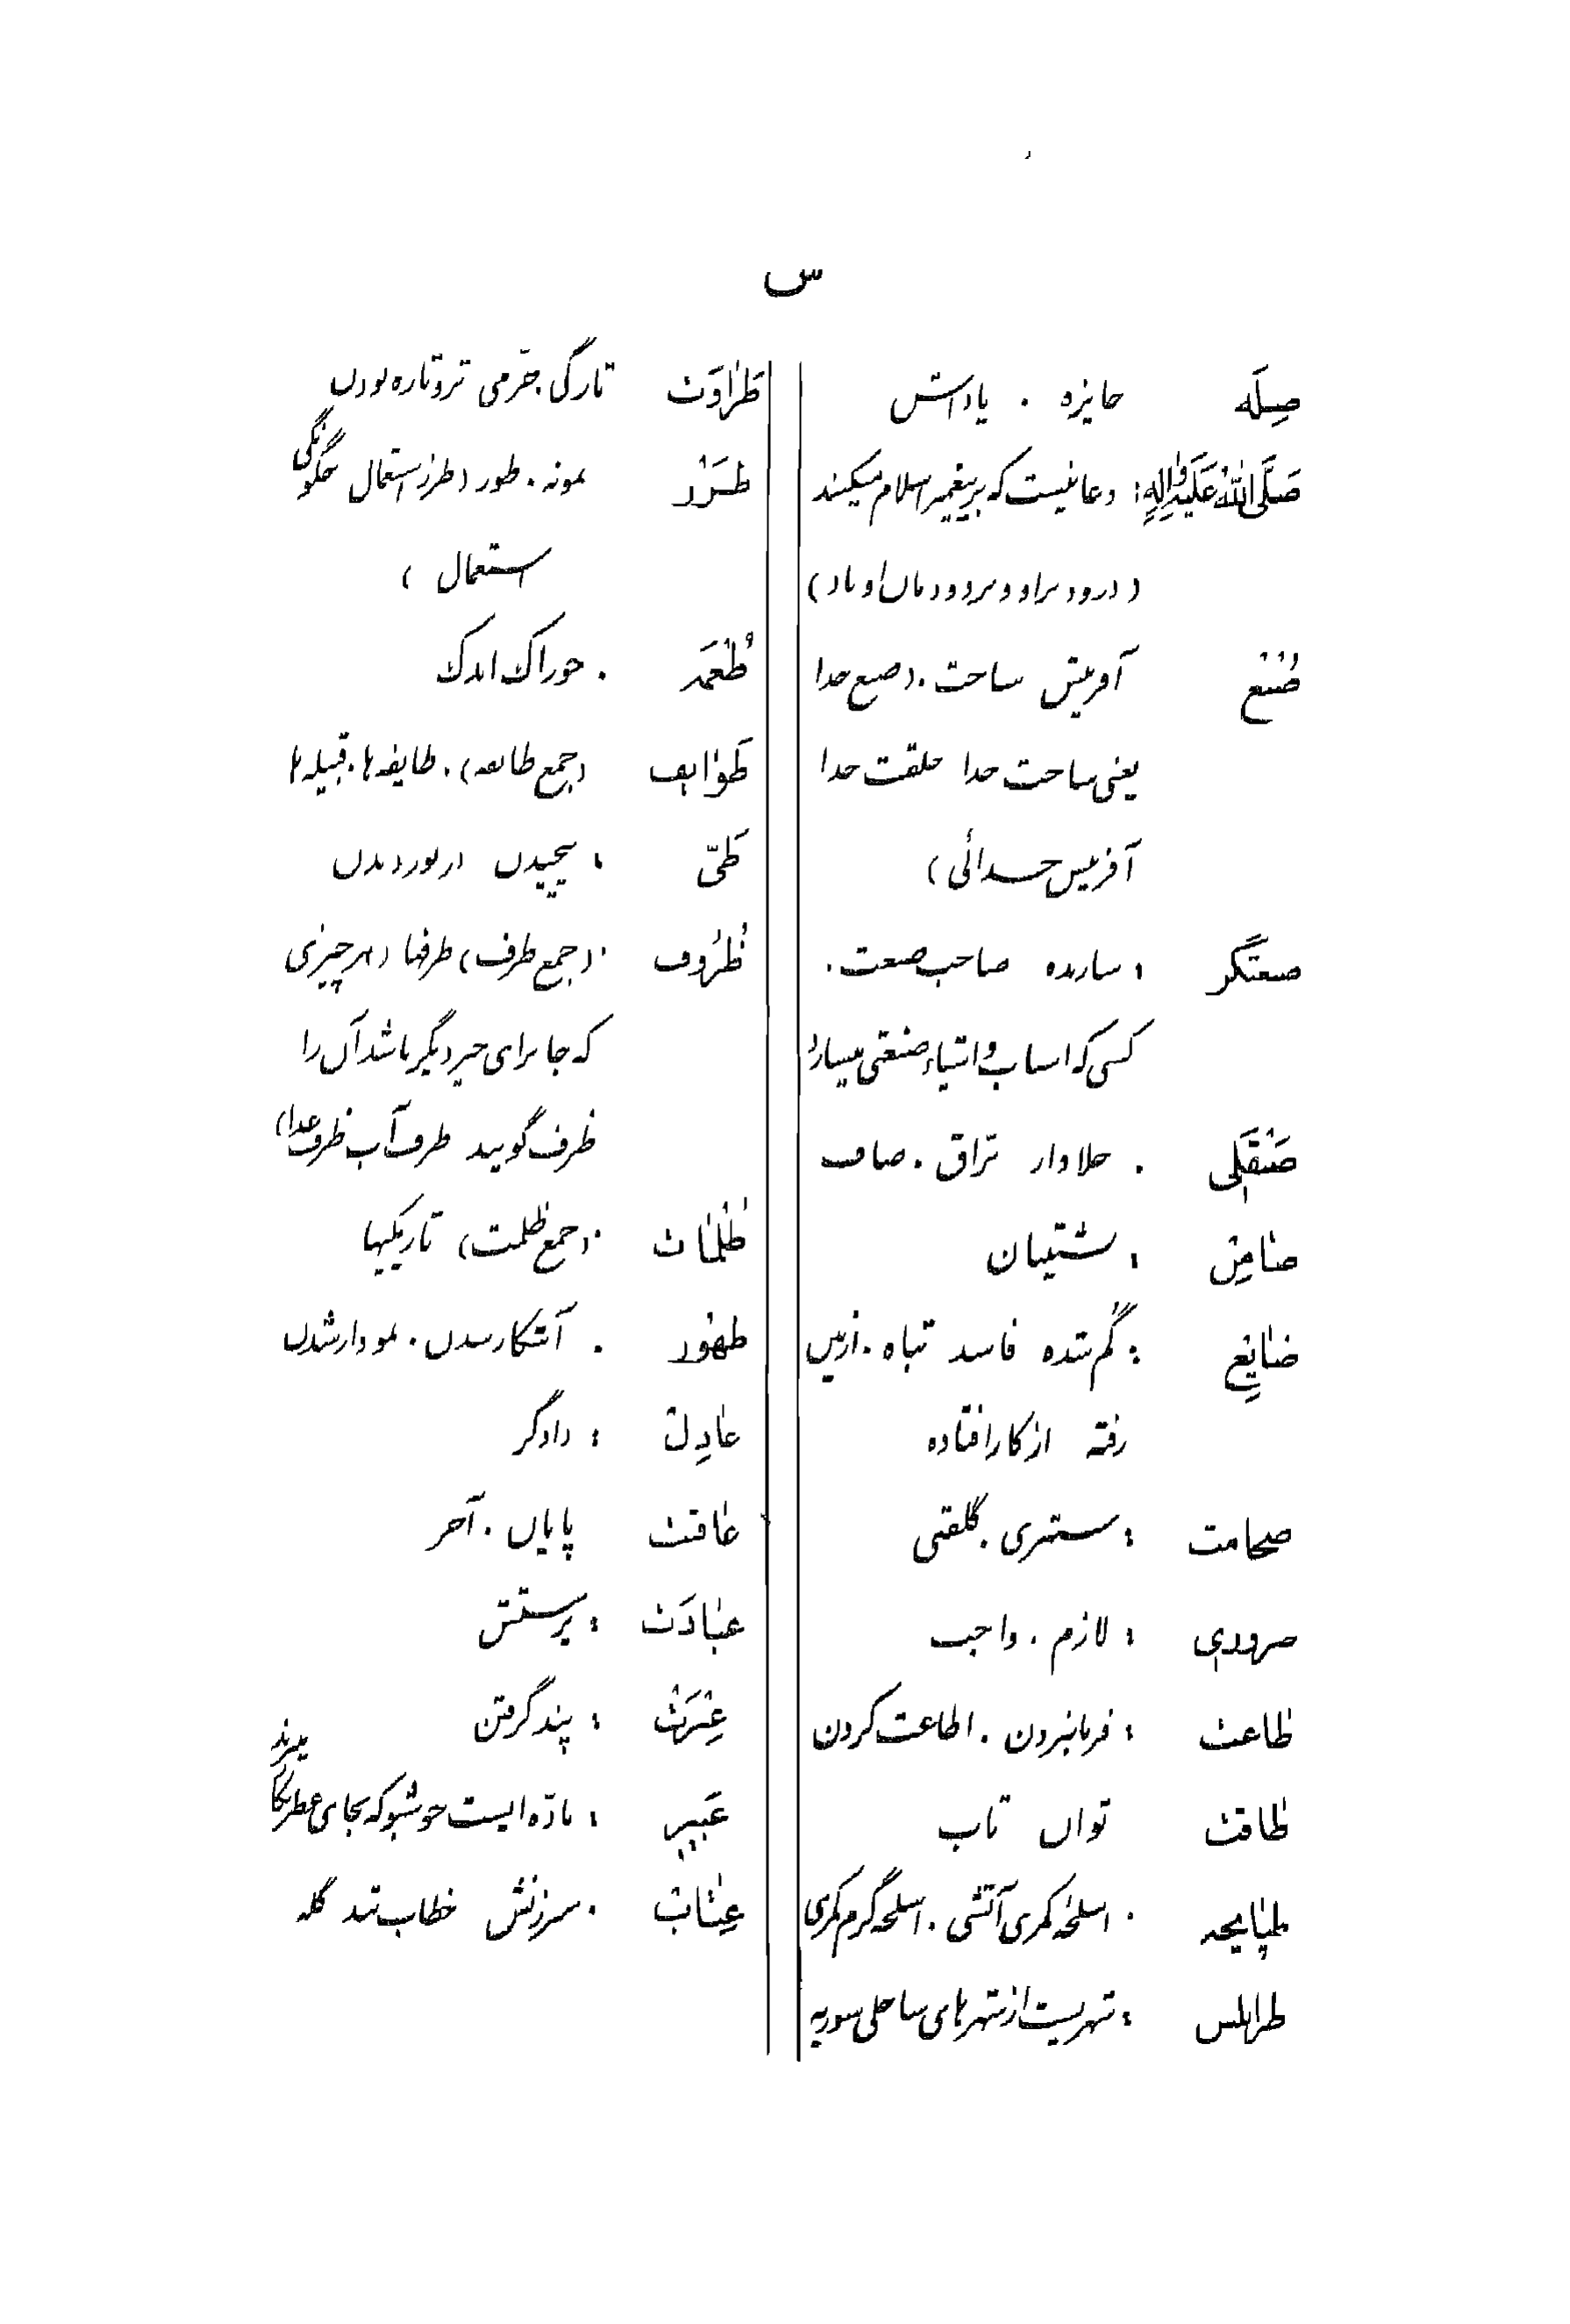 س
صِلَه : جایزه . پاداش
صَلَّی اللهُ عَلَیْهِ وَآلِهِ : دعائیست که برپیغمبر اسلام میکنند
(درود براو و بردودمان او باد)
صُنْع : آفرینش ساخت . (صنع خدا
یعنی ساخت خدا خلقت خدا
آفرینش خدائی)
صنعتگر : سازنده صاحب صنعت .
کسی که اسباب و اشیاء صنعتی میسازد
صَیْقَلی : جلادار براق . صاف
ضامِن : پشتیبان
ضایِع : گم شده فاسد تباه . ازبین
رفته ازکارافتاده
ضخامت : ستبری . کلفتی
ضروری : لازم . واجب
طاعت : فرمانبردن . اطاعت کردن
طاقت : توان تاب
طپانچه : اسلحهٔ کمری آتشی . اسلحه گرم کمری
طرابلس : شهریست از شهرهای ساحلی سوریه
طَراوَت : تازگی خرّمی تروتازه بودن
طَرْز : نمونه . طور (طرز استعمال چگونگی
استعمال)
طُعْمَه : خوراک اندک
طَوایف : (جمع طایفه) . طایفه ها . قبیله ها
طَیّ : پیچیدن درنوردیدن
ظُرُوف : (جمع ظرف) ظرفها (هرچیزی
که جا برای چیز دیگر باشد آن را
ظرف گویند ظرف آب ظرف غذا)
ظُلُمات : (جمع ظلمت) تاریکیها
ظهور : آشکارشدن . نمودارشدن
عادِل : دادگر
عاقبت : پایان . آخر
عِبادَت : پرستش
عِبْرَت : پند گرفتن
عَبیر : مادّه ایست خوشبو که بجای عطر بکار میبرند
عِتاب : سرزنش خطاب تند گله